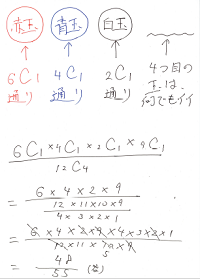 赤玉 青玉 白玉
6C1通り 4C1通り 2C1通り 4つ目の玉は、何でもイイ
6C1 × 4C1 × 2C1 × 9C1
12C4
= 6 × 4 × 2 × 9
12 × 11 × 10 × 9
4 × 3 × 2 × 1
= 6 × 4 × 2 × 9 × 4 × 3 × 2 × 1
12 × 11 × 10 × 9
5
= 48
55 (答)